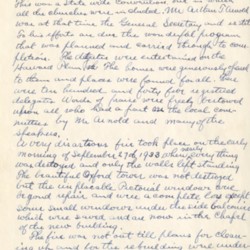 This was a State wide Convention one in which
all the churches were included. Mr. Arthur Arnold
was at that time the General Secretary and
So his efforts are due the wonderful program
that was planned and carried through to com-
pletion. The delegates were entertained on the
Harvard Plan. The homes were generously opened
to them and places were found for all. There
were ten hundred and forty five registered
delegates. Words of praise were freely bestowed
upon all who had a part on the local com-
mittees by Mr Arnold and many of the
speakers.
A very disastrous fire took place on the early
morning of September 17th 1923 when every thing
was destroyed and only the walls left standing.
The beautiful Oxford tower was not destroyed
but the irreplaceable Pictorial windows were
beyond repair and were a complete loss except
some small windows under the side balconies
which were saved and are now in the Chapel
of the new building.
The fire was not out till plans for clear-
ing up and for the rebuilding were under